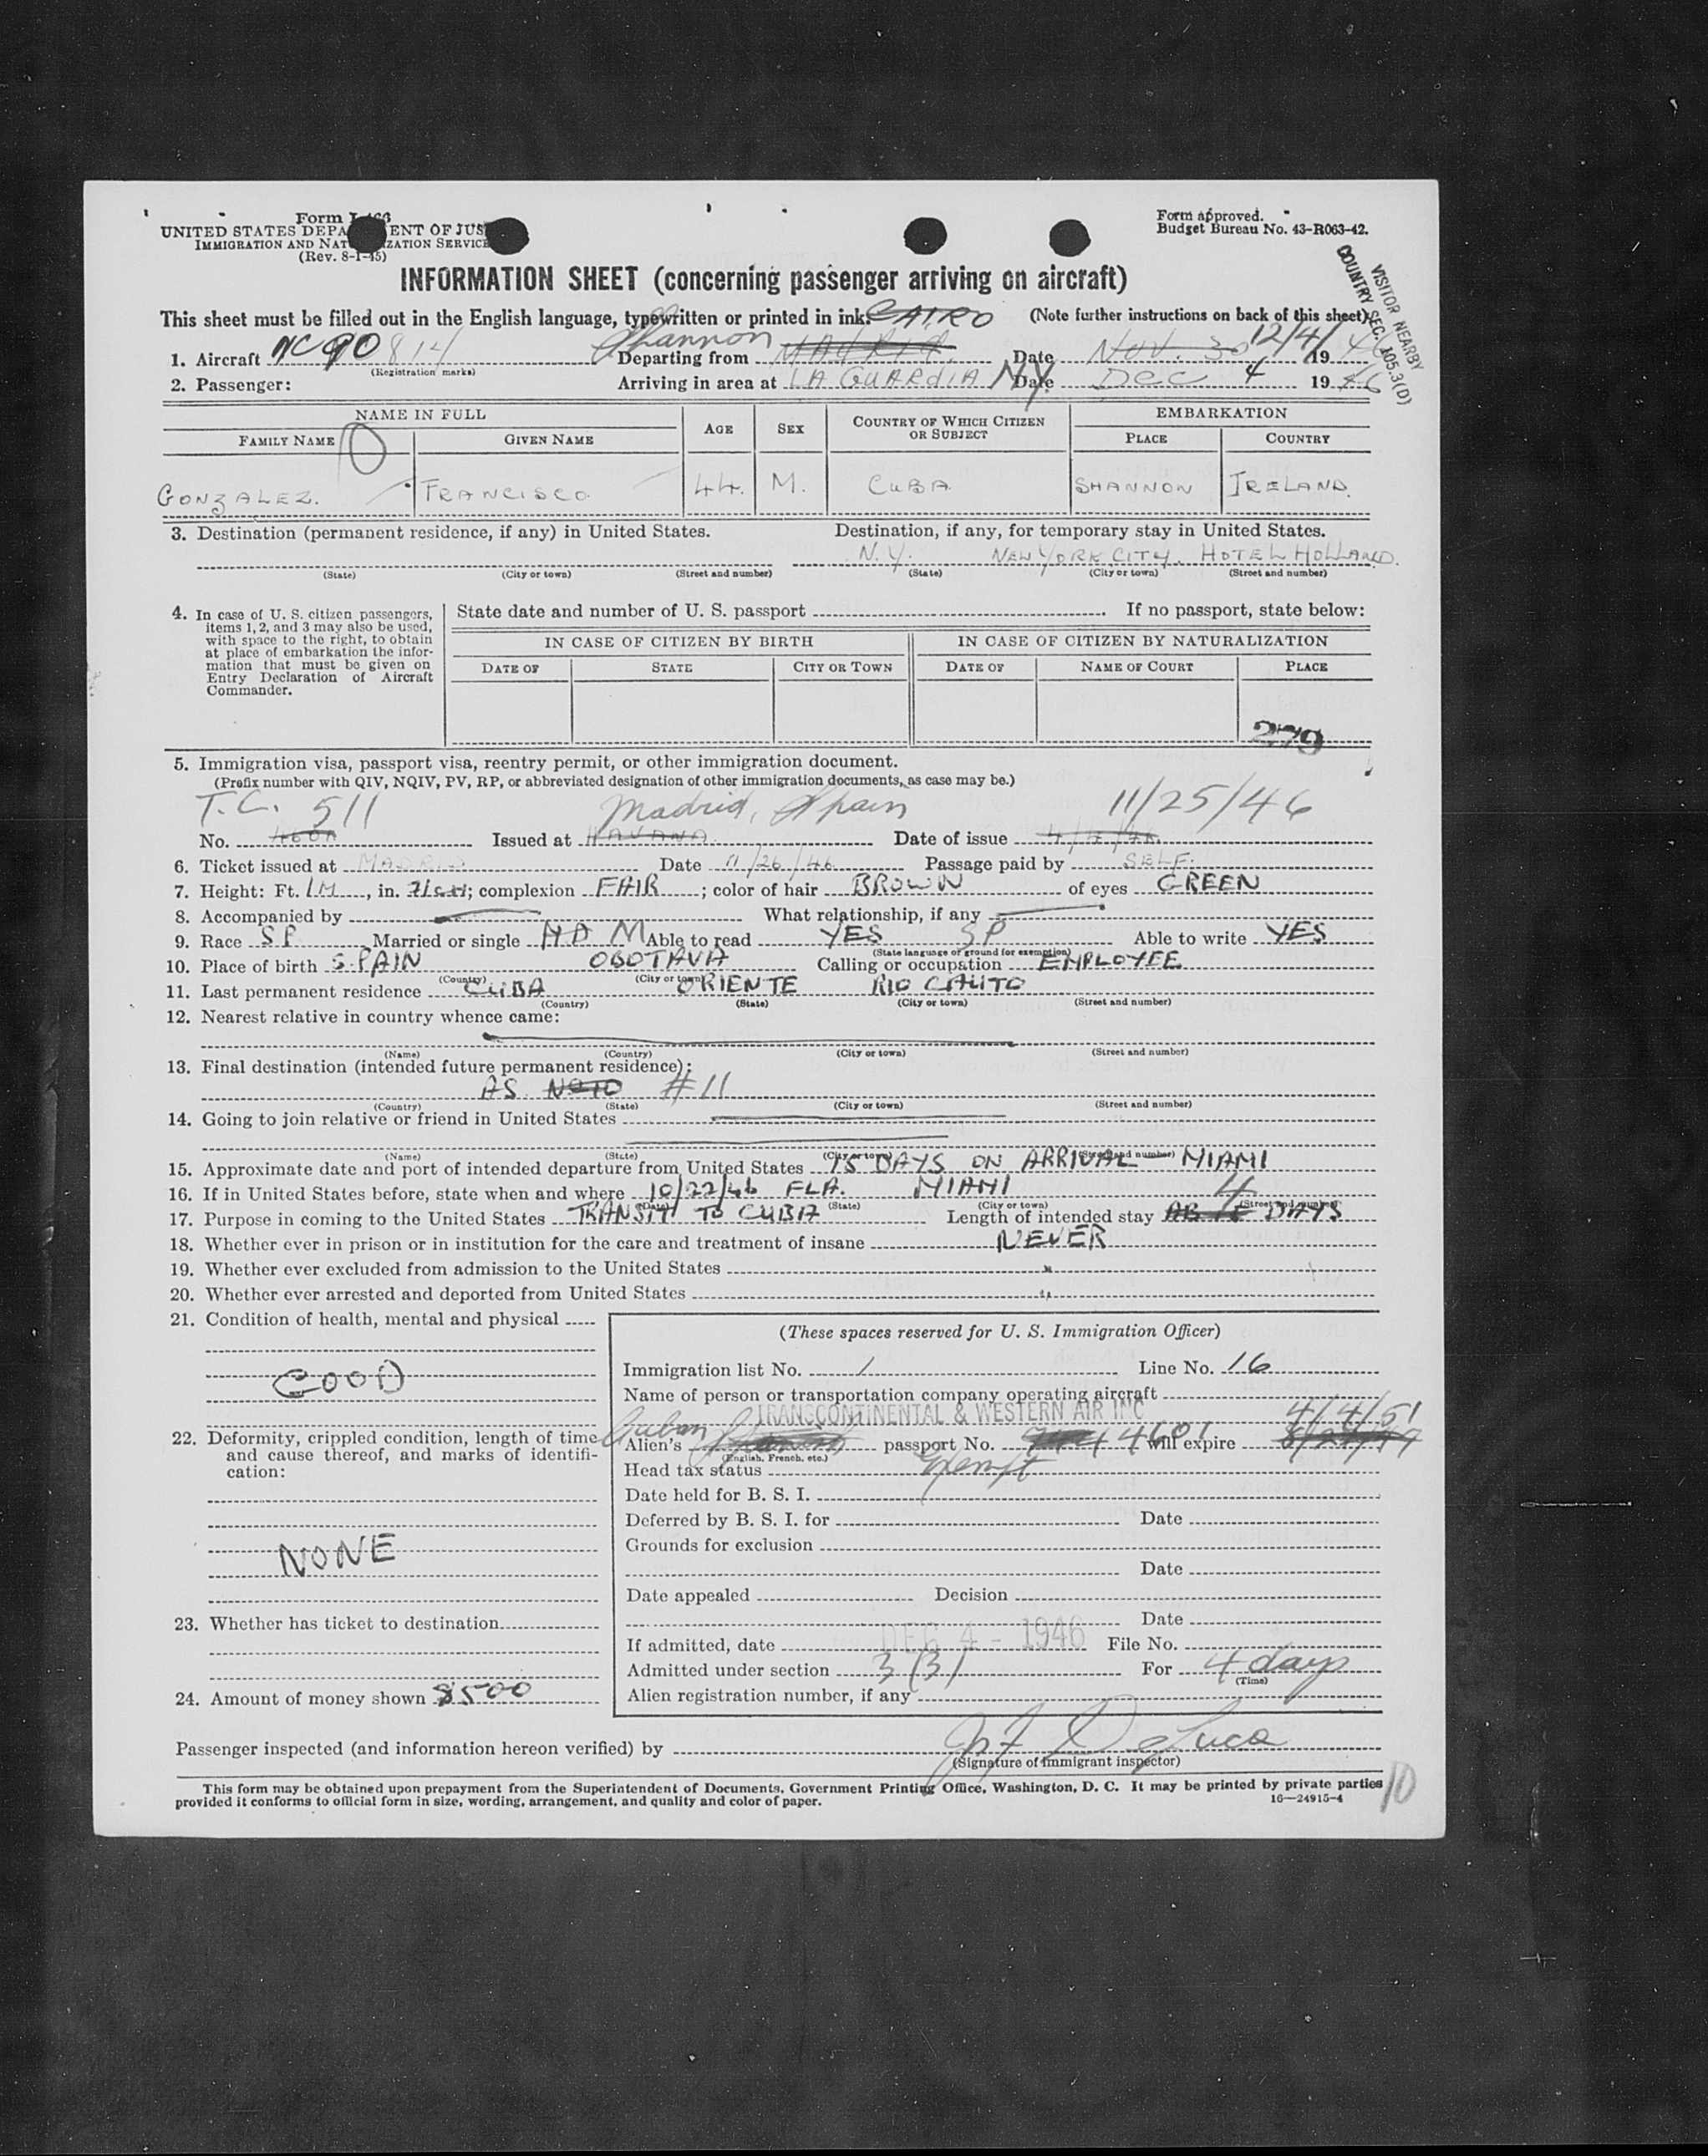 Form I-466
UNITED STATES DEPARTMENT OF JUSTICE
IMMIGRATION AND NATURALIZATION SERVICE
(Rev. 8-1-45)
Form approved.
Budget Bureau No. 43-R063-42.
VISITOR NEARBY
COUNTRY SEC. 105.3(D)
INFORMATION SHEET (concerning passenger arriving on aircraft)
This sheet must be filled out in the English language, typewritten or printed in ink. CAIRO (Note further instructions on back of this sheet)
1. Aircraft NC 90814 Departing from Shannon MADRID Date NOV. 30 12/4/ 19 46
(Registration marks)
2. Passenger: Arriving in area at LA GUARDIA N.Y. Date DEC 4 19 46
NAME IN FULL AGE SEX COUNTRY OF WHICH CITIZEN OR SUBJECT EMBARKATION
FAMILY NAME GIVEN NAME PLACE COUNTRY
GONZALEZ. FRANCISCO 44. M. CUBA SHANNON IRELAND.
3. Destination (permanent residence, if any) in United States. Destination, if any, for temporary stay in United States.
N.Y. NEW YORK CITY. HOTEL HOLLAND.
(State) (City or town) (Street and number) (State) (City or town) (Street and number)
4. In case of U. S. citizen passengers, items 1, 2, and 3 may also be used, with space to the right, to obtain at place of embarkation the information that must be given on Entry Declaration of Aircraft Commander.
State date and number of U. S. passport . If no passport, state below:
IN CASE OF CITIZEN BY BIRTH IN CASE OF CITIZEN BY NATURALIZATION
DATE OF STATE CITY OR TOWN DATE OF NAME OF COURT PLACE
279
5. Immigration visa, passport visa, reentry permit, or other immigration document.
(Prefix number with QIV, NQIV, PV, RP, or abbreviated designation of other immigration documents, as case may be.)
T.C. 511 Madrid, Spain 11/25/46
No. Issued at HAVANA. Date of issue
6. Ticket issued at MADRID Date 11/26/46 Passage paid by SELF.
7. Height: Ft. 1M , in. 71CM; complexion FAIR ; color of hair BROWN of eyes GREEN
8. Accompanied by What relationship, if any
9. Race SP Married or single M Able to read YES SP Able to write YES
(State language or ground for exemption)
10. Place of birth SPAIN OROTAVA Calling or occupation EMPLOYEE
(Country) (City or town)
11. Last permanent residence CUBA ORIENTE RIO CAUTO
(Country) (State) (City or town) (Street and number)
12. Nearest relative in country whence came:
(Name) (Country) (City or town) (Street and number)
13. Final destination (intended future permanent residence):
AS #11
(Country) (State) (City or town) (Street and number)
14. Going to join relative or friend in United States
(Name) (State) (City or town) (Street and number)
15. Approximate date and port of intended departure from United States 15 DAYS ON ARRIVAL - MIAMI
16. If in United States before, state when and where 10/22/46 FLA. MIAMI
(Date) (State) (City or town) (Street and number)
17. Purpose in coming to the United States TRANSIT TO CUBA Length of intended stay 4 DAYS
18. Whether ever in prison or in institution for the care and treatment of insane NEVER
19. Whether ever excluded from admission to the United States "
20. Whether ever arrested and deported from United States "
21. Condition of health, mental and physical
GOOD
22. Deformity, crippled condition, length of time and cause thereof, and marks of identification:
NONE
23. Whether has ticket to destination
24. Amount of money shown $500
(These spaces reserved for U. S. Immigration Officer)
Immigration list No. 1 Line No. 16
Name of person or transportation company operating aircraft
TRANSCONTINENTAL & WESTERN AIR INC
Alien's Cuban passport No. 4601 will expire 4/4/51
(English, French, etc.)
Head tax status Exempt
Date held for B. S. I.
Deferred by B. S. I. for Date
Grounds for exclusion
Date
Date appealed Decision
Date
If admitted, date DEC 4 - 1946 File No.
Admitted under section 3(3) For 4 days
(Time)
Alien registration number, if any
Passenger inspected (and information hereon verified) by De Luca
(Signature of immigrant inspector)
This form may be obtained upon prepayment from the Superintendent of Documents, Government Printing Office, Washington, D. C. It may be printed by private parties
provided it conforms to official form in size, wording, arrangement, and quality and color of paper.
16—24915-4
10